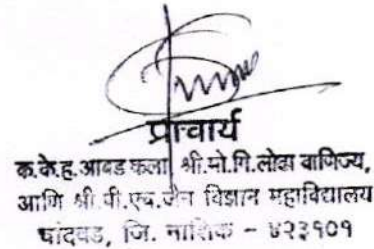 प्राचार्य
क.के.ह.आबड कला, श्री.मो.गि.लोढा वाणिज्य,
आणि श्री.पी.एच.जैन विज्ञान महाविद्यालय
चांदवड, जि. नाशिक - ४२३१०१